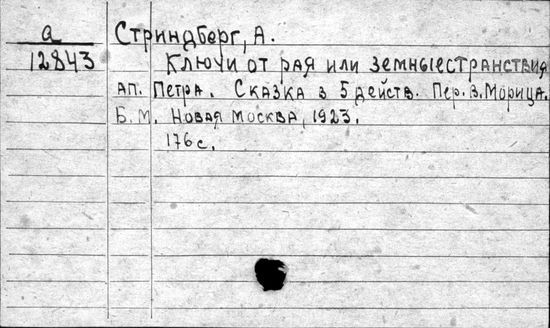 а
12843
Стриндберг, А.
Ключи от рая или земные странствия
ап. Петра. Сказка в 5 действ. Пер. В. Морица.
Б.М. Новая Москва, 1923.
176 с.